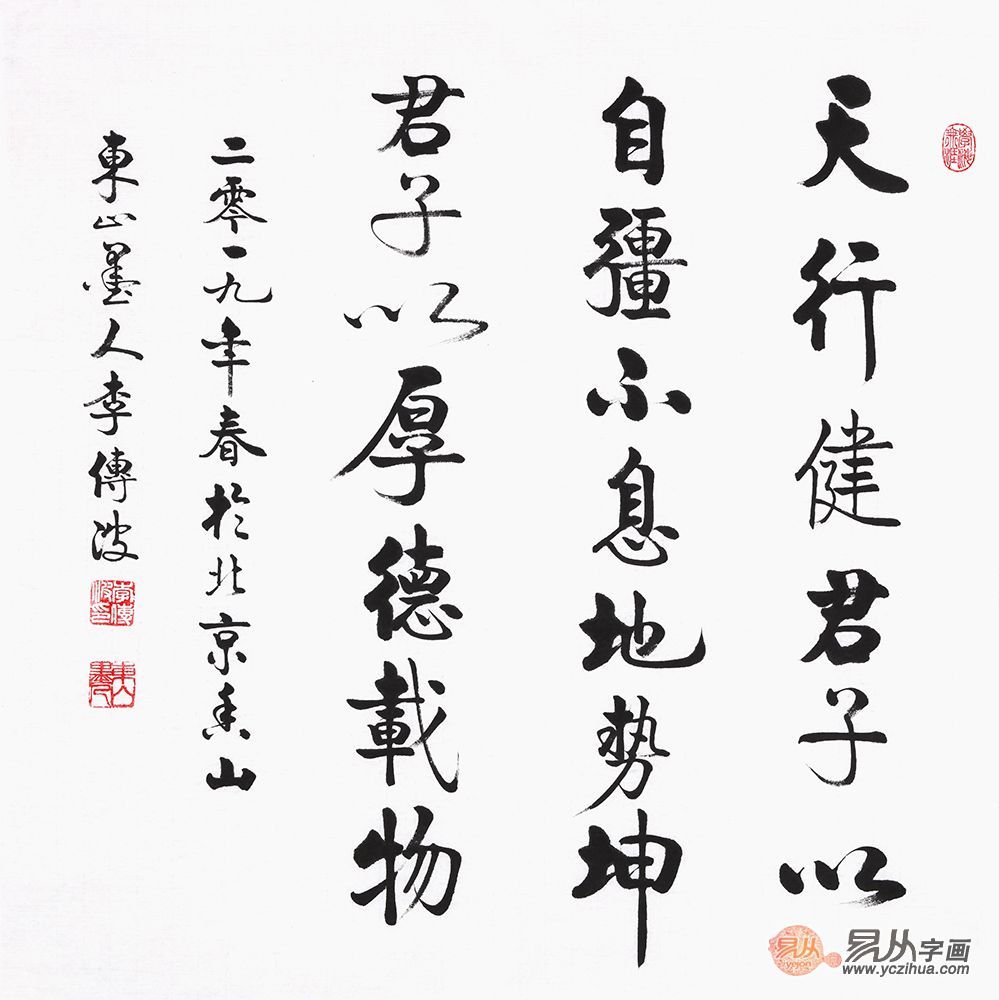 天行健君子以
自彊不息地勢坤
君子以厚德載物
二零一九年春於北京香山
東山墨人李傳波
李傳波印
易从
易从字画
www.yczihua.com